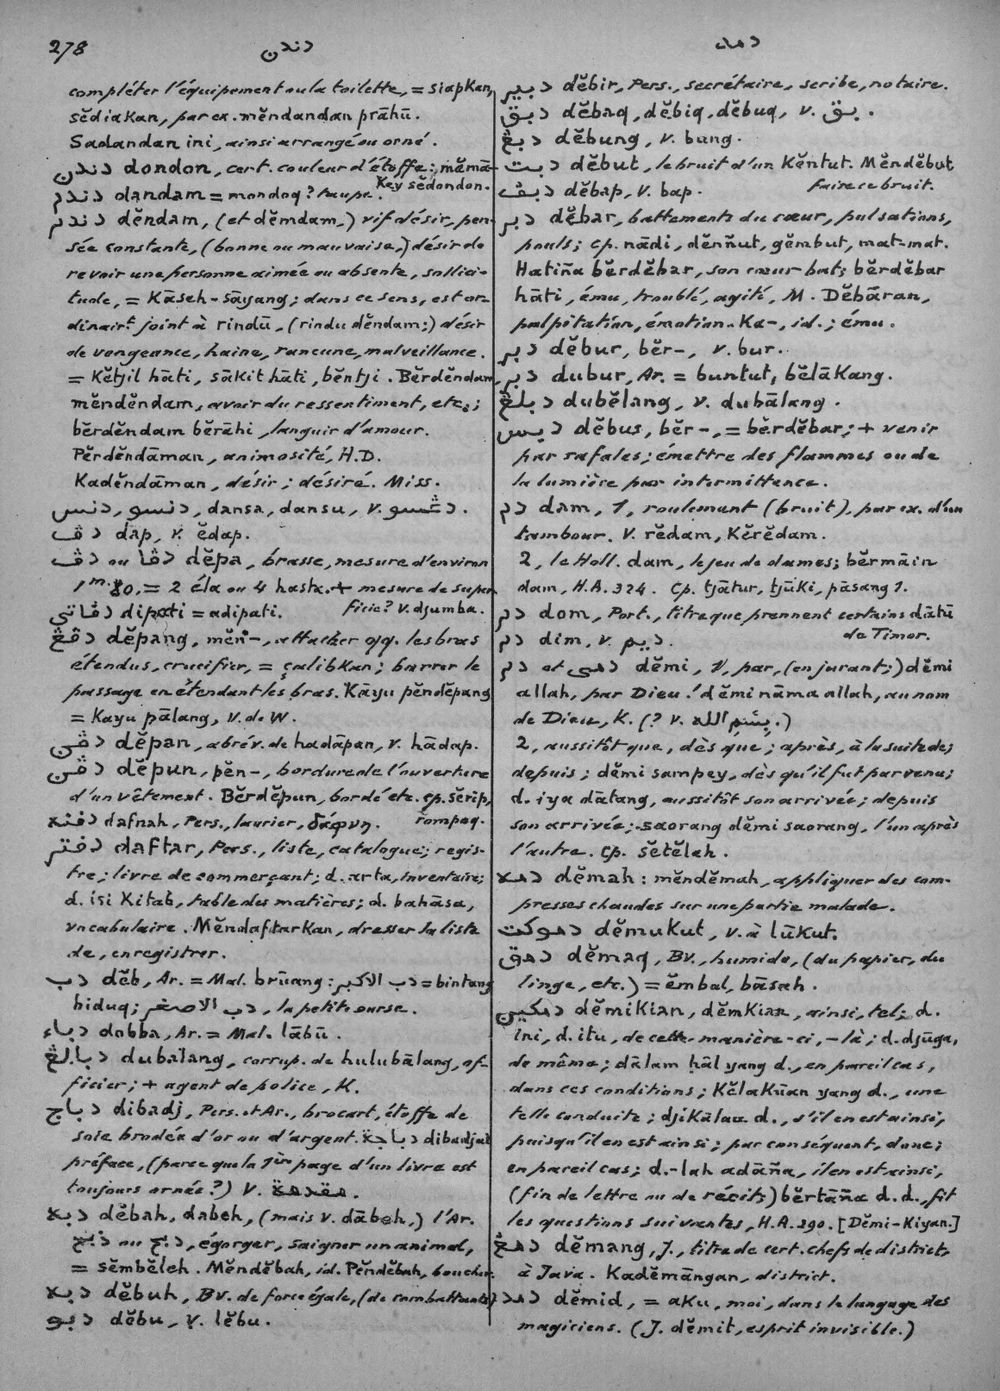 278
دندن
دمڠ
compléter l'équipement ou la toilette, = siapkan,
sĕdiakan, par ex. mĕndandan prāhū.
Sadandan ini, ainsi arrangé ou orné.
دندن dondon, cert. couleur d'étoffe: mĕmā-
key sĕdondon.
دندم dandam = mondoq? taupe.
دندم dĕndam, (et dĕmdam,) vif désir, pen-
sée constante, (bonne ou mauvaise,) désir de
revoir une personne aimée ou absente, sollici-
tude, = Kāseh-sāyang; dans ce sens, est or-
dinairt. joint à rindū, (rindu dĕndam;) désir
de vengeance, haine, rancune, malveillance.
= Kĕtjil hāti, sākit hāti, bĕntji. Bĕrdĕndam,
mĕndĕndam, avoir du ressentiment, etc.;
bĕrdĕndam bĕrāhi, languir d'amour.
Pĕrdĕndāman, animosité, H.D.
Kadĕndāman, désir; désiré. Miss.
دنسو, دنس, dansa, dansu, v. دڠسو.
دڤ dap, v. ĕdap.
دڤ ou دڤا dĕpa, brasse, mesure d'environ
1m.80, = 2 éla ou 4 hasta. + mesure de super-
ficie? v. djumba.
دڤاتي dipati = adipati.
دڤڠ dĕpang, mĕn-, attacher qq. les bras
étendus, crucifier, = çalibkan; barrer le
passage en étendant les bras. Kāyu pĕndĕpang
= Kayu pālang, V. de W.
دڤن dĕpan, abrév. de hadāpan, v. hādap.
دڤن dĕpun, pĕn-, bordure de l'ouverture
d'un vêtement. Bĕrdĕpun, bordé etc. cp. sĕrip,
rompoq.
دفنه dafnah, Pers., laurier, δάφνη.
دفتر daftar, Pers., liste, catalogue; regis-
tre; livre de commerçant; d. arta, inventaire;
d. isi Kitab, table des matières; d. bahāsa,
vocabulaire. Mĕndaftarkan, dresser la liste
de, enregistrer.
دب dĕb, Ar. = Mal. brūang: دب الاكبر = bintang
biduq; دب الاصغر, la petite ourse.
دباء dobba, Ar. = Mal. lābū.
دبالڠ dubalang, corrup. de hulubālang, of-
ficier; + agent de police, K.
دباج dibadj, Pers. et Ar., brocart, étoffe de
soie brodée d'or ou d'argent. دباجة dibadjat
préface, (parce que la 1ère page d'un livre est
toujours ornée?) V. مقدمة.
دبه dĕbah, dabeh, (mais v. dābeh,) l'Ar.
ذبح ou دبح, égorger, saigner un animal,
= sĕmbĕleh. Mĕndĕbah, id. Pĕndĕbah, boucher.
دبه dĕbuh, BV. de force égale, (de combattants)
دبو dĕbu, v. lĕbu.
دبير dĕbir, Pers., secrétaire, scribe, notaire.
دبق dĕbaq, dĕbiq, dĕbuq, v. بق.
دبڠ dĕbung, v. bung.
دبت dĕbut, le bruit d'un Kĕntut. Mĕndĕbut
faire ce bruit.
دبڤ dĕbap, v. bap.
دبر dĕbar, battements du cœur, pulsations,
pouls; cp. nādi, dĕnñut, gĕmbut, mat-mat.
Hatiña bĕrdĕbar, son cœur bat; bĕrdĕbar
hāti, ému, troublé, agité, M. Dĕbāran,
palpitation, émotion. Ka-, id.; ému.
دبر dĕbur, bĕr-, v. bur.
دبر dubur, Ar. = buntut, bĕlākang.
دبلڠ dubĕlang, v. dubālang.
دبس dĕbus, bĕr-, = bĕrdĕbar; + venir
par rafales; émettre des flammes ou de
la lumière par intermittence.
دم dam, 1, roulement (bruit), par ex. d'un
tambour. V. rĕdam, Kĕrĕdam.
2, le Holl. dam, le jeu de dames; bĕrmāin
dam, H.A. 324. Cp. tjātur, tjūki, pāsang 1.
دم dom, Port., titre que prennent certains dātū
de Timor.
دم dim, v. ديم.
دم et دمي dĕmi, 1, par, (en jurant;) dĕmi
allah, par Dieu! dĕmi nāma allah, au nom
de Dieu, K. (? v. بسم الله.)
2, aussitôt que, dès que; après, à la suite de;
depuis; dĕmi sampey, dès qu'il fut parvenu;
d. iya dātang, aussitôt son arrivée; depuis
son arrivée; saorang dĕmi saorang, l'un après
l'autre. cp. sĕtĕlah.
دمه dĕmah: mĕndĕmah, appliquer des com-
presses chaudes sur une partie malade.
دموكت dĕmukut, v. à lūkut.
دمق dĕmaq, BV., humide, (du papier, du
linge, etc.) = ĕmbal, bāsah.
دمكين dĕmikian, dĕmkian, ainsi, tel; d.
ini, d. itu, de cette manière-ci, -là; d. djūga,
de même; dālam hāl yang d., en pareil cas,
dans ces conditions; Kĕlakūan yang d., une
telle conduite; djikālau d., s'il en est ainsi,
puisqu'il en est ainsi; par conséquent, donc;
en pareil cas; d.-lah adāña, il en est ainsi,
(fin de lettre ou de récit;) bĕrtāña d. d., fit
les questions suivantes, H.A. 290. [Dĕmi-Kiyan.]
دمڠ dĕmang, J., titre de cert. chefs de districts
à Java. Kadĕmāngan, district.
دمد dĕmid, = aku, moi, dans le langage des
magiciens. (J. dĕmit, esprit invisible.)